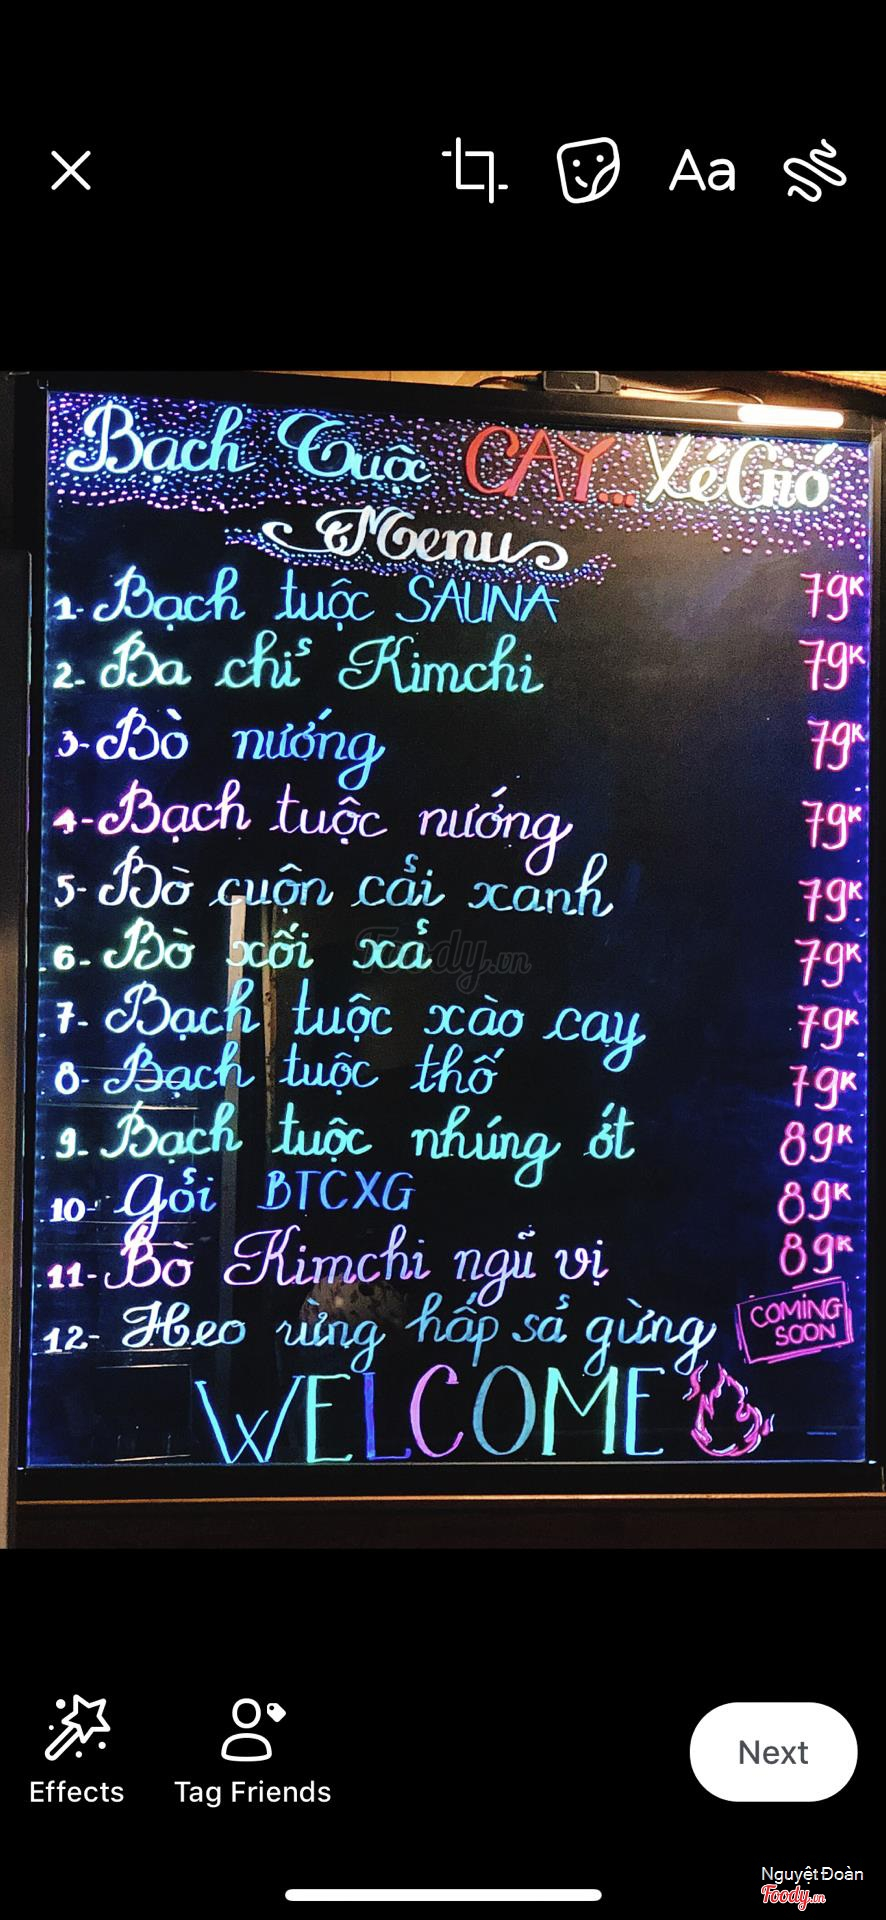 Aa
Bạch Tuộc CAY... Xé Gió
Menu
1- Bạch tuộc SAUNA 79K
2- Ba chỉ Kimchi 79K
3- Bò nướng 79K
4- Bạch tuộc nướng 79K
5- Bò cuộn cải xanh 79K
6- Bò xối xả 79K
Foody.vn
7- Bạch tuộc xào cay 79K
8- Bạch tuộc thố 79K
9- Bạch tuộc nhúng ớt 89K
10- gỏi BTCXG 89K
11- Bò Kimchi ngũ vị 89K
12- Heo rừng hấp sả gừng COMING SOON
WELCOME
Effects
Tag Friends
Next
Nguyệt Đoàn
Foody.vn